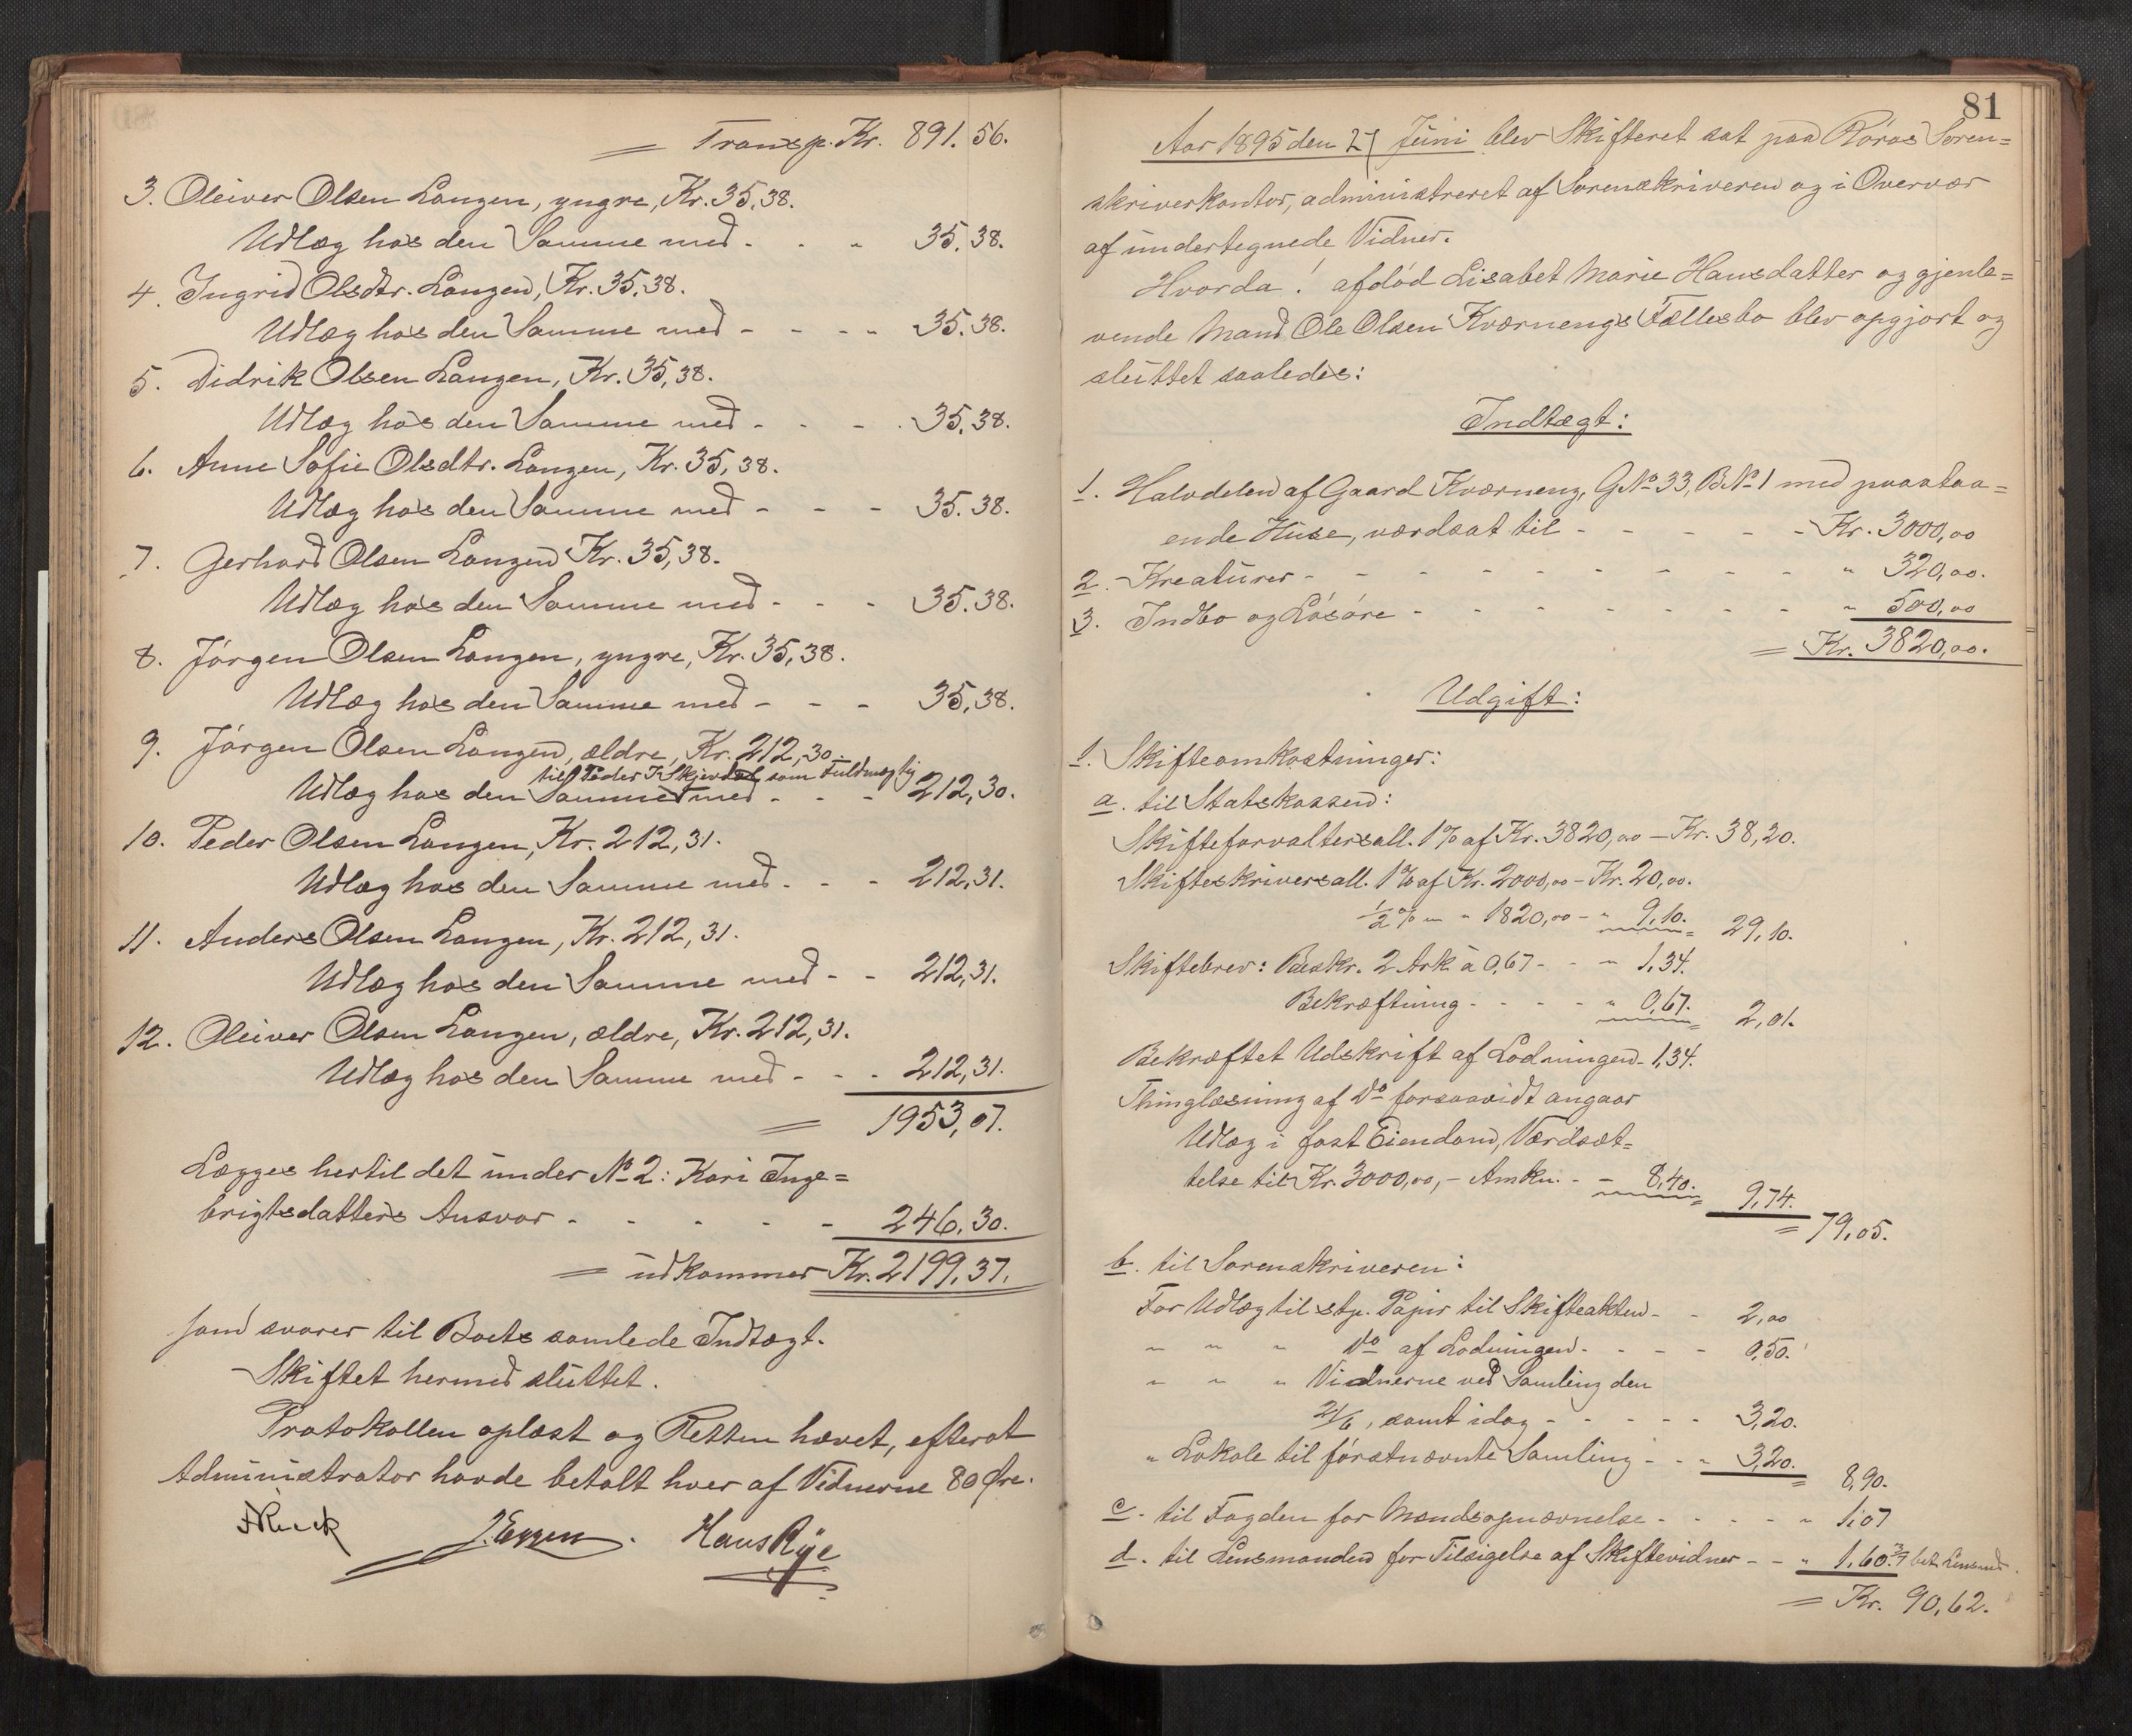 = Transp. Kr. 891.56.
3. Oleiver Olsen Langen, yngre, Kr. 35,38.
Udlæg hos den Samme med - - " 35.38.
4. Ingrid Olsdtr. Langen, Kr. 35,38.
Udlæg hos den Samme med - - - " 35.38.
5. Didrik Olsen Langen, Kr. 35,38.
Udlæg hos den Samme med - - - . 35.38.
6. Anne Sofie Olsdtr. Langen, Kr. 35,38.
Udlæg hos den Samme med - - - 35.38.
7. Gerhard Olsen Langen Kr. 35,38.
Udlæg hos den Samme med - - - 35.38.
8. Jörgen Olsen Langen, yngre, Kr. 35,38.
Udlæg hos den Samme med - - - 35,38.
9. Jörgen Olsen Langen, ældre, Kr. 212,30
til Peder som Fuldmægtig
Udlæg hos den Samme med - - - 212,30.
10. Peder Olsen Langen, Kr. 212,31.
Udlæg hos den Samme med - - - 212,31.
11. Anders Olsen Langen, Kr. 212,31.
Udlæg hos den Samme med - - 212,31.
12. Oleiver Olsen Langen, ældre, Kr. 212,31.
Udlæg hos den Samme med - - - 212,31.
= 1953,07.
Lægges hertil det under No 2: Kari Inge=
brigtsdatters Ansvar - - - - - 246,30.
= udkommer Kr. 2199,37.
som svarer til Boets samlede Indtægt.
Skiftet hermed sluttet.
Protokollen oplæst og Retten hævet, efterat
Administrator havde betalt hver af Vidnerne 80 Øre.
J. Eggen. Hans Rye
81
Aar 1895 den 27 Juni blev Skifteret sat paa Röros Soren=
skriverkontor, administreret af Sorenskriveren og i Overvær
af undertegnede Vidner.
Hvorda! afdöd Lisabet Marie Hansdatter og gjenle=
vende Mand Ole Olsen Kværnengs Fællesbo blev opgjort og
sluttet saaledes:
Indtægt:
1. Halvdelen af Gaard Kværneng, GNo 33, BNo 1 med paastaa=
ende Huse, værdsat til - - - - - Kr. 3000,00
2. Kreaturer - - - - - - - - - " 320,00.
3. Indbo og Lösöre - - - - - - - " 500,00
= Kr. 3820,00.
Udgift:
1. Skifteomkostninger:
a. til Statskassen:
Skifteforvaltersall. 1% af Kr. 3820,00 - Kr. 38,20.
Skifteskriversall. 1% af Kr. 2000,00 - Kr. 20,00.
1/2 % " " 1820,00 - " 9,10. = 29,10.
Skiftebrev: Beskr. 2 Ark à 0,67 - - " 1,34.
Bekræftning - - - - " 0,67. = 2,01.
Bekræftet Udskrift af Lodningen - 1,34.
Thinglæsning af Do forsaavidt angaar
Udlæg i fast Eiendom, Værdsæt=
telse til Kr. 3000,00, - Amkn. - - 8,40. = 9,74.
= 79,05.
b. til Sorenskriveren:
For Udlæg til stp. Papir til Skifteakten - - 2,00
" " " Do af Lodningen - - - - 0,50.
" " " Vidnerne ved Samling den
21/6, samt idag - - - - - 3,20.
" Lokale til förstnævnte Samling - - " 3,20. = 8,90.
c. til Fogden for Mændsopnævnelse - - - - " 1,07
d. til Lensmanden for Tilsigelse af Skiftevidner - - " 1,60. bet. Lensmd.
= Kr. 90,62.